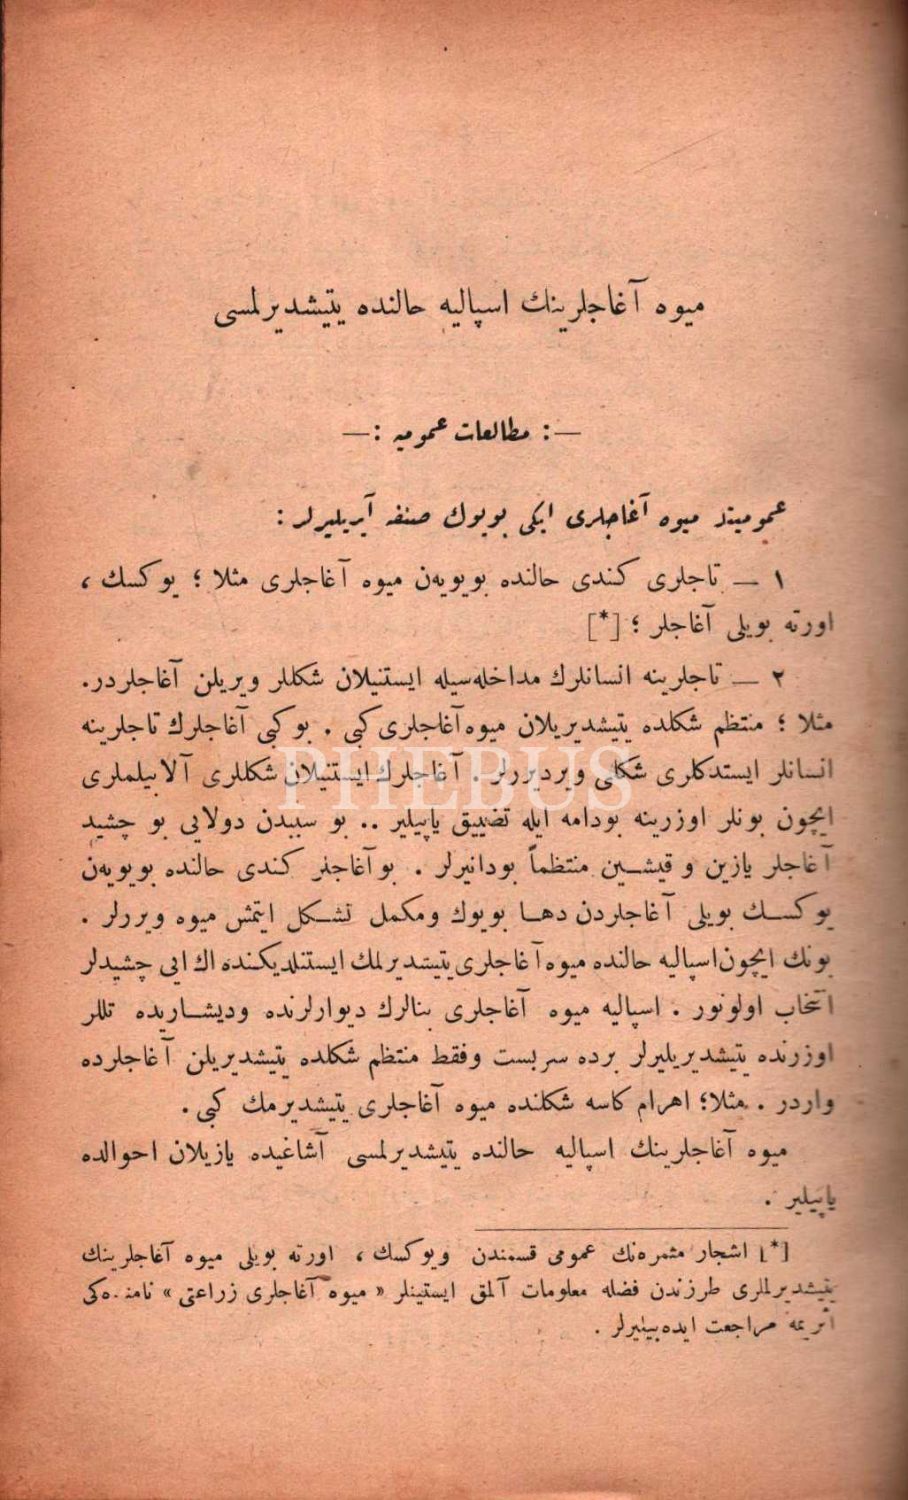 میوه آغاجلرینك اسپالیه حالنده یتیشدیرلمسی
—: مطالعات عمومیه :—
عمومیتله میوه آغاجلری ایکی بویوك صنفه آیریلیرلر :
١ — تاجلری کندی حالنده بویویه‌ن میوه آغاجلری مثلا ؛ یوکسك ،
اورته بویلی آغاجلر ؛ [*]
٢ — تاجلرینه انسانلرك مداخله‌سیله ایستنیلان شکللر ویریلن آغاجلردر.
مثلا ؛ منتظم شکلده یتیشدیریلان میوه آغاجلری کبی . بو کبی آغاجلرك تاجلرینه
انسانلر ایستدکلری شکلی ویردیررلر . آغاجلرك ایستنیلان شکللری آلابیلملری
PHEBUS
ایچون بونلر اوزرینه بودامه ایله تضییق یاپیلیر .. بو سببدن دولایی بو چشید
آغاجلر یازین و قیشـین منتظماً بودانیرلر . بو آغاجلر کندی حالنده بویویه‌ن
یوکسـك بویلی آغاجلردن دهـا بویوك ومکمل تشـکل ایتمش میوه ویررلر .
بونك ایچون اسپالیه حالنده میوه آغاجلری یتیشدیرلمك ایستنلدیکنده اك ایی چشیدلر
انتخاب اولونور . اسپالیه میوه آغاجلری بنالرك دیوارلرنده ودیشـاریده تللر
اوزرنده یتیشدیریلیرلر برده سربست وفقط منتظم شکلده یتیشدیریلن آغاجلرده
واردر . مثلا؛ اهرام کاسه شکلنده میوه آغاجلری یتیشدیرمك کبی .
میوه آغاجلرینك اسپالیه حالنده یتیشدیرلمسی آشاغیده یازیلان احوالده
یاپیلیر .
[*] اشجار مثمره‌نك عمومی قسمندن ویوکسك ، اورته بویلی میوه آغاجلرینك
یتیشدیرلملری طرزندن فضله معلومات آلمق ایستینلر « میوه آغاجلری زراعتی » نامنده‌کی
اثریمه مراجعت ایده‌بیلیرلر .